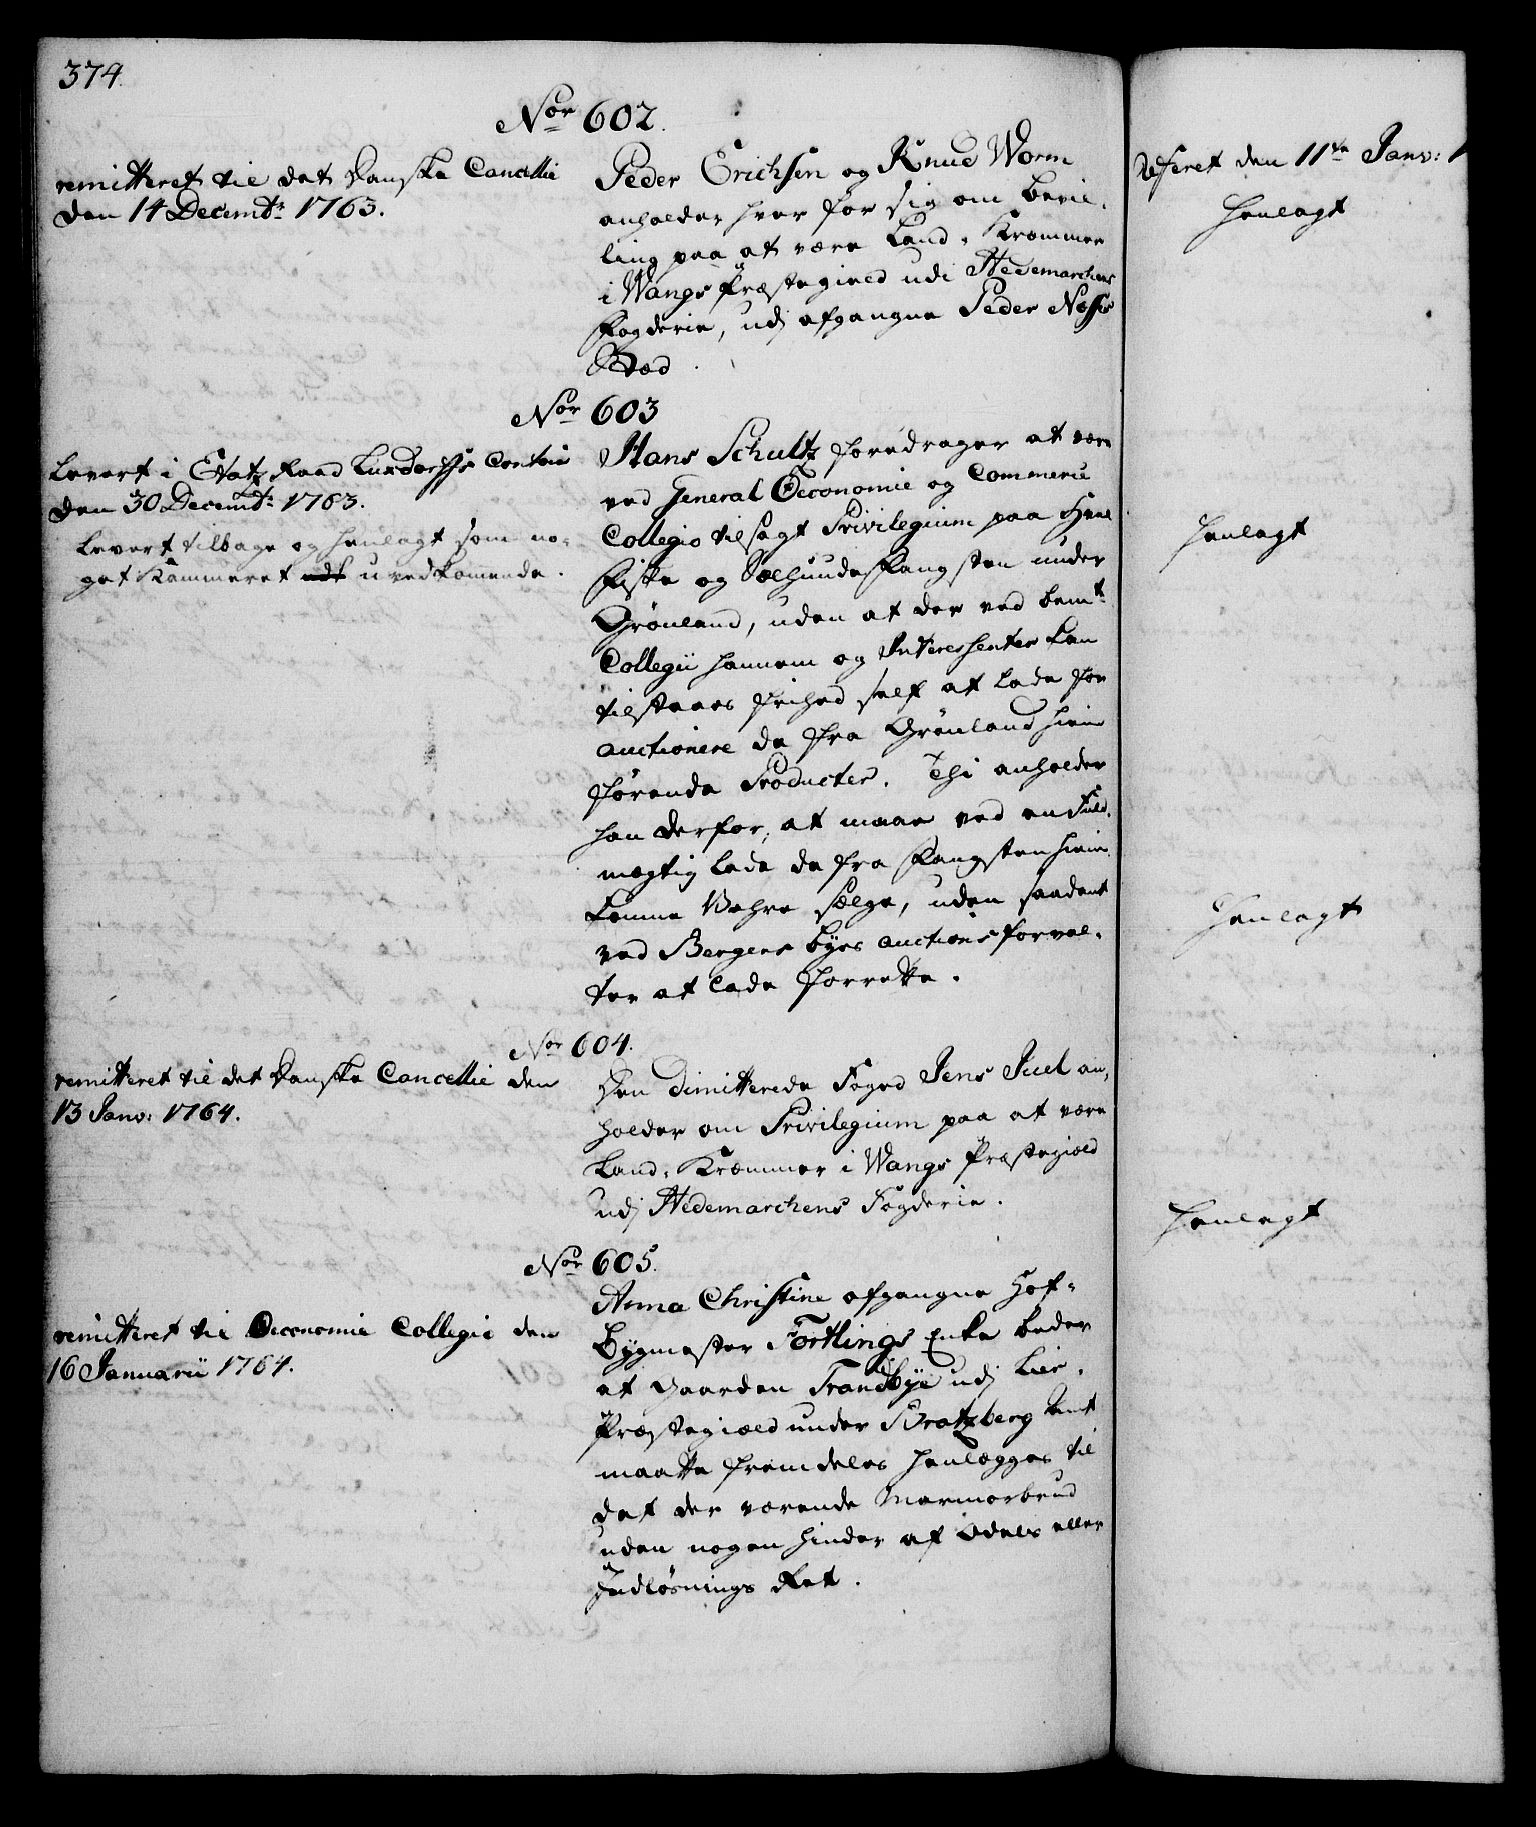 374.
Nor 602.
remitteret til det danske Cancellie
den 14 Decembr 1763.
Peder Erichsen og Knud Worm
anholder hver for sig om bevil-
ling paa at være Land-Kræmmer
i Wangs Præstegield udi Hedemarchens
Fogderie, udj afgangne Peder Næsses
Stæd.
Referet den 11te Janv:
Henlagt
Nor 603
Levert i Etatz Raad Luxdorffs Contoir
den 30 Decembr 1763.
Levert tilbage og henlagt som no-
get Kammeret udt uvedkommende.
Hans Schultz foredrager at være
ved General Oeconomie og Commerce
Collegio tilsagt Privilegium paa Hval
Fiske og Sælhunde Fangsten under
Grønland, uden at der ved bemte
Collegii hannem og Interessenter kan
tilstaaes frihed self at lade for
auctionere de fra Grønland hiem
førende Producter. Thi anholder
han derfor, at maae ved en Fuld-
mægtig lade de fra Fangsten hiem
komme Vahre sælge, uden saadant
ved Bergens byes auctions forval-
ter at lade forrette.
Henlagt
Nor 604.
remitteret til det danske Cancellie den
13 Janv: 1764.
Den dimitterede Foged Jens Juel an-
holder om Privilegium paa at være
Land-Kræmmer i Wangs Præstegield
udj Hedemarchens Fogderie.
Henlagt
Nor 605.
remitteret til Oeconomie Collegio den
16 Januarii 1764.
Anna Christine afgangne Hof-
bygmester Fortlings Enke beder
at Gaarden Trandbye udj Lier-
Præstegield under Bratzberg Amt
maatte fremdeles henlægges til
det der værende Marmorbrud
uden nogen hinder af Odels eller
Indløsnings Ret.
Henlagt